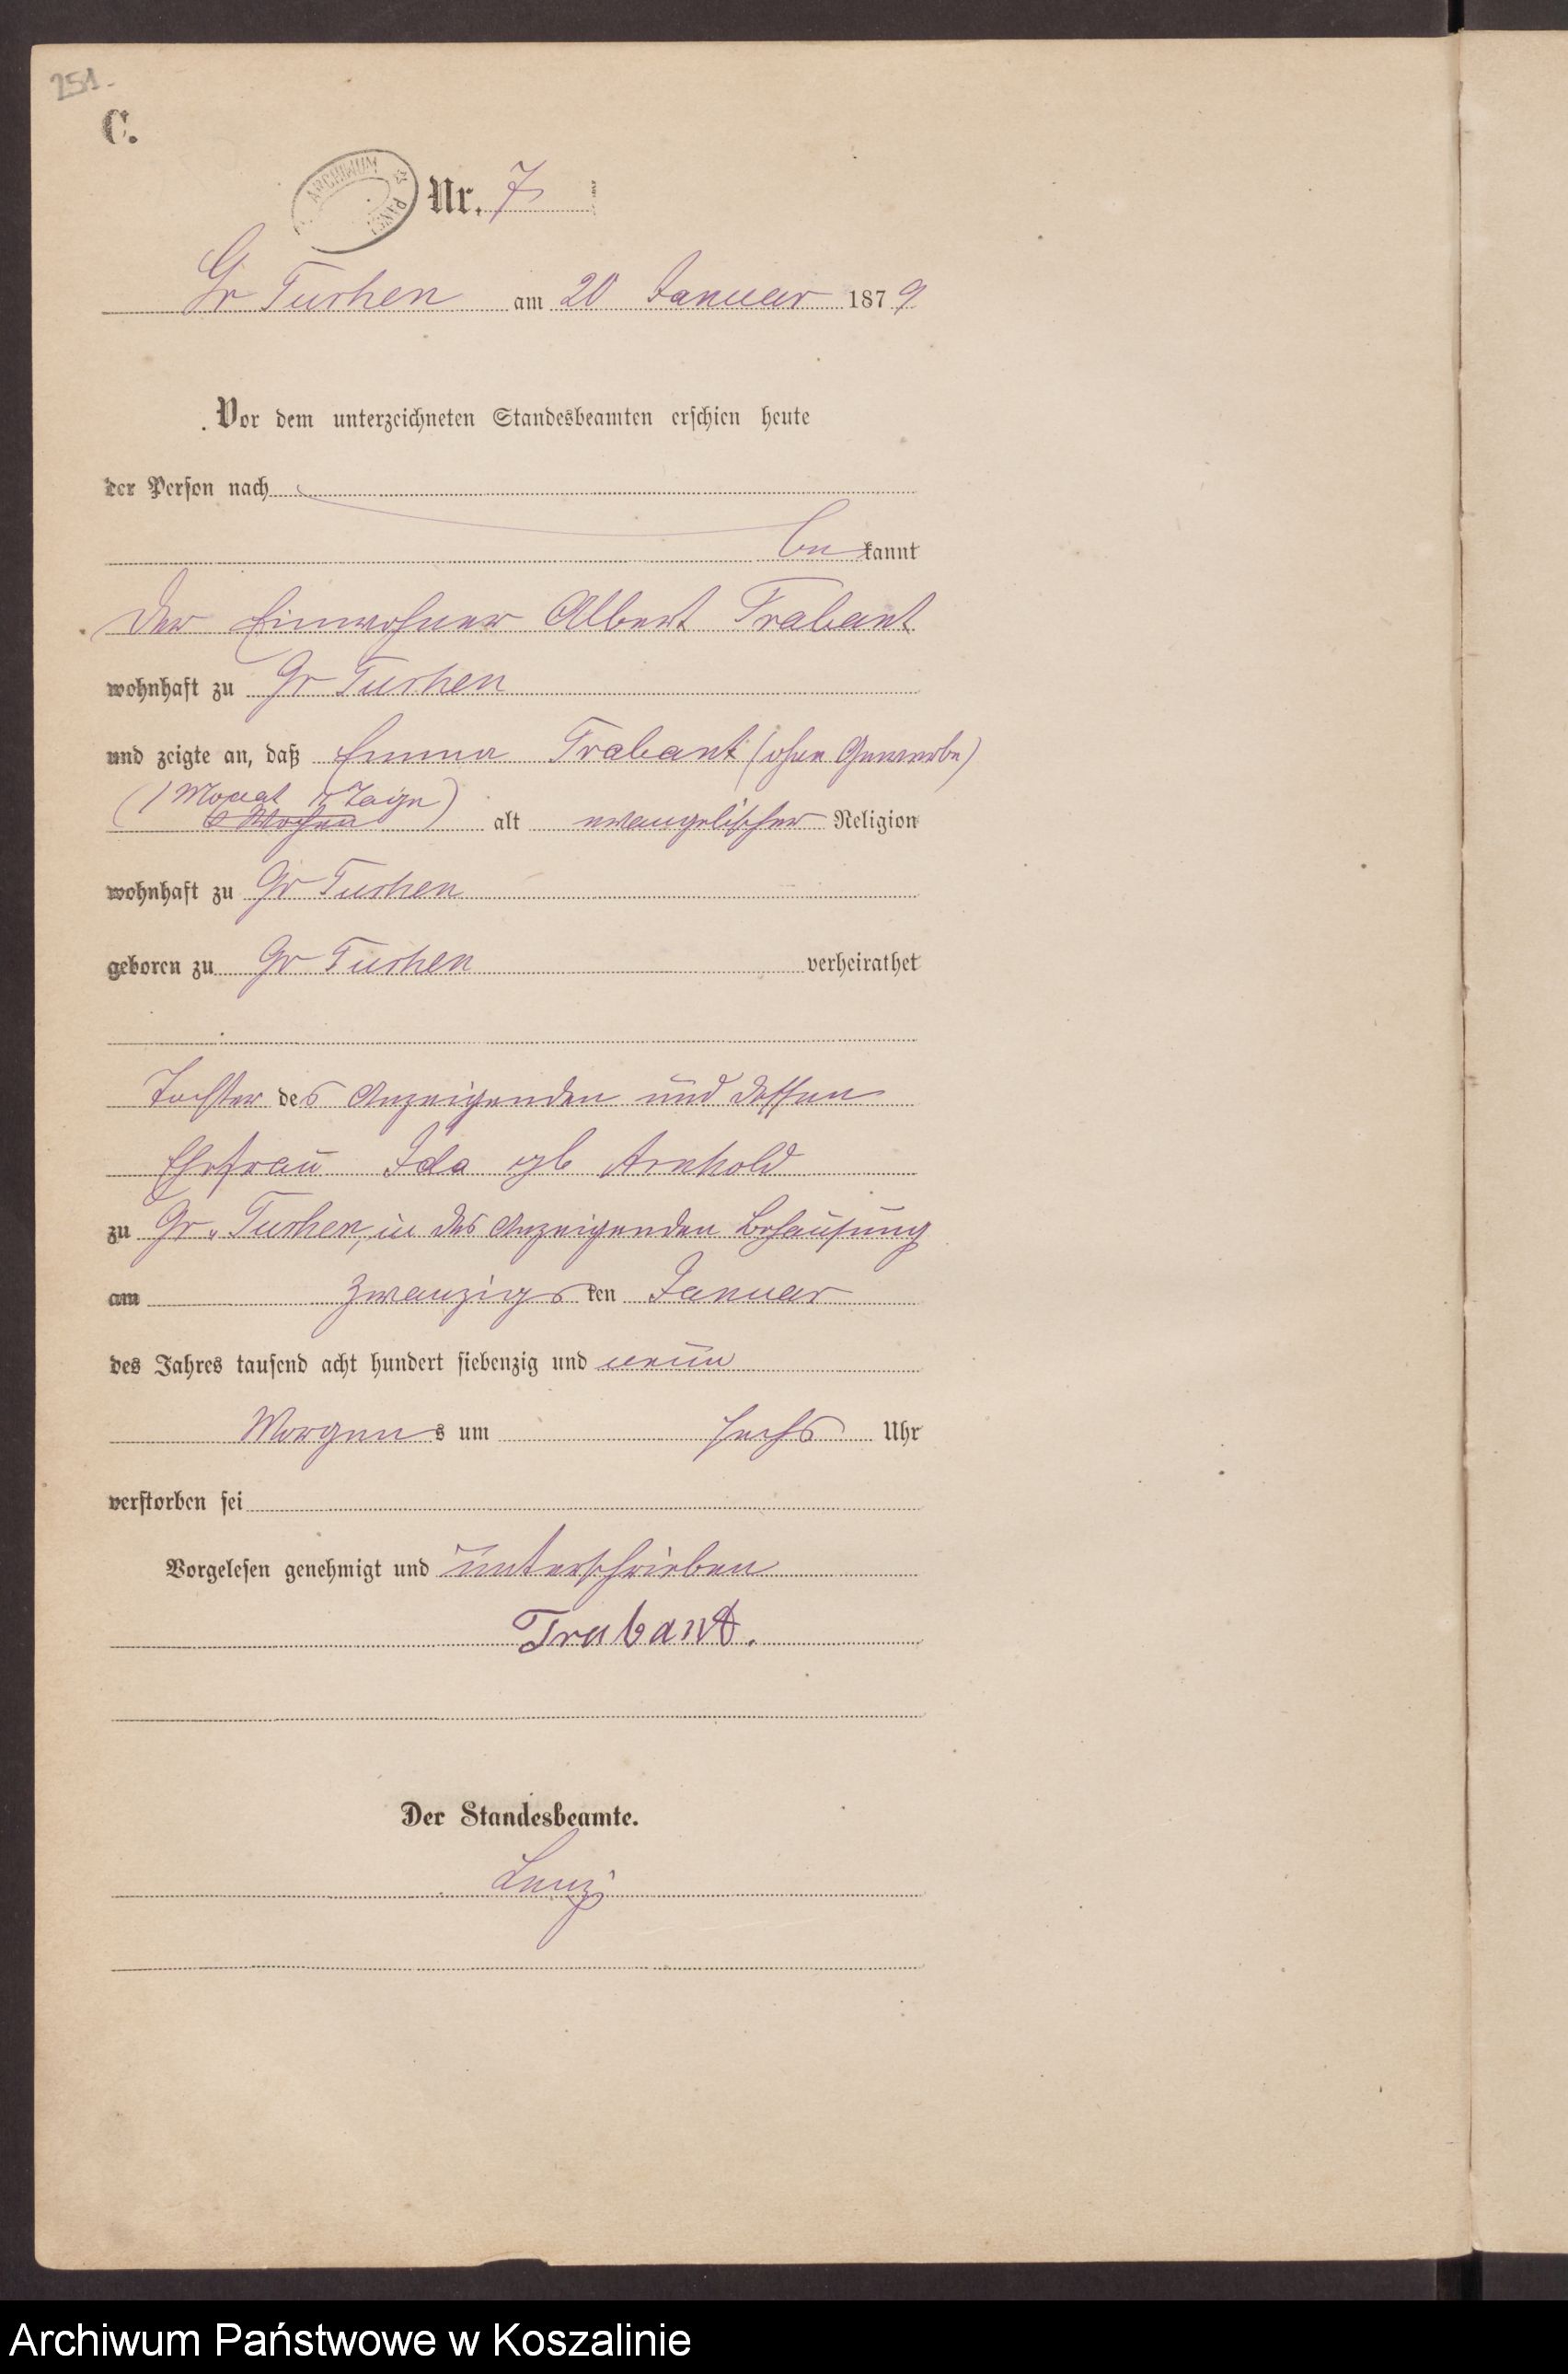 251.
C.
ARCHIWUM
Nr. 7
Gr Tuchen am 20 Januar 1879
Vor dem unterzeichneten Standesbeamten erschien heute
der Person nach
be kannt
der Einwohner Albert Trabant
wohnhaft zu Gr Tuchen
und zeigte an, daß Emma Trabant (ohne Gewerbe)
(1 Monat Tage)
6 Wochen alt evangelischer Religion
wohnhaft zu Gr Tuchen
geboren zu Gr Tuchen verheirathet
Tochter des Anzeigenden und dessen
Ehefrau Ida geb Arnhold
zu Gr. Tuchen, in des Anzeigenden Behausung
am zwanzigsten Januar
des Jahres tausend acht hundert siebenzig und neun
Morgens um sechs Uhr
verstorben sei
Vorgelesen genehmigt und unterschrieben
Trabant.
Der Standesbeamte.
Archiwum Państwowe w Koszalinie